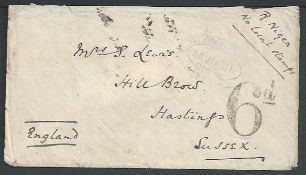 R. Niger
No local stamps
Mrs F. Lewis
Hill Brow
Hastings
Sussex.
England
6d